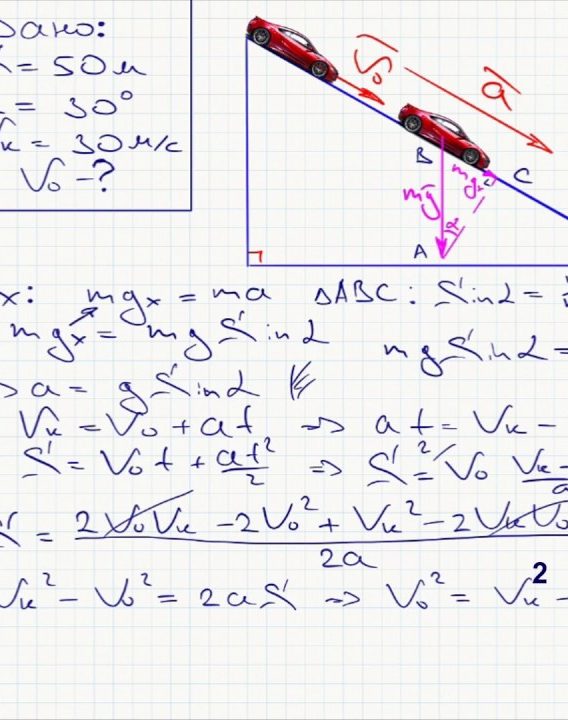 Дано:
= 50 м
= 30°
Vк = 30 м/с
V₀ - ?
V₀ a
B C
mg mgx
α
A
x: mgx = ma ΔABC: Sin α =
mgx = mg Sin α mg Sin α =
=> a = g Sin α
Vк = V₀ + at => at = Vк -
S = V₀t + at²/2 => S = V₀ Vк -
S = 2V₀Vк - 2V₀² + Vк² - 2VкV₀
2a
Vк² - V₀² = 2aS => V₀² = Vк² -